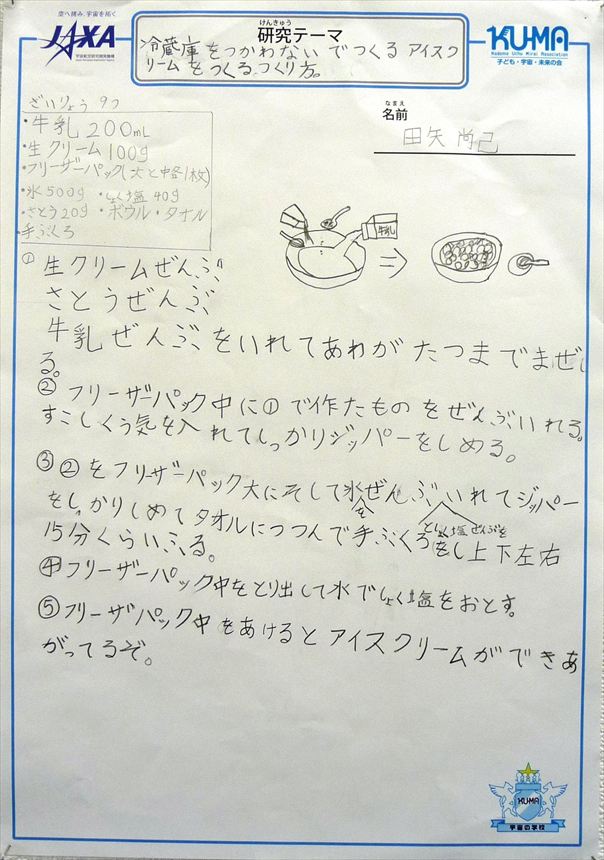 空へ挑み、宇宙を拓く
JAXA
宇宙航空研究開発機構
Japan Aerospace Exploration Agency
けんきゅう
研究テーマ
冷蔵庫をつかわないでつくるアイスク
リームをつくるつくり方。
KU-MA
Kodomo Uchu Mirai Association
子ども・宇宙・未来の会
なまえ
名前
田矢 尚己
ざいりょう 9つ
・牛乳 200mL
・生クリーム 100g
・フリーザーパック(大と中各1枚)
・氷500g ・しょく塩 40g
・さとう20g ・ボウル ・タオル
・手ぶくろ
牛乳
① 生クリームぜんぶ
さとうぜんぶ
牛乳ぜんぶをいれてあわがたつまでまぜ
る。
② フリーザーパック中に①で作たものをぜんぶいれる。
すこしくう気を入れてしっかりジッパーをしめる。
③ ②をフリーザーパック大にそして氷ぜんぶ としょく塩ぜんぶを いれてジッパー
をしっかりしめてタオルにつつんで手ぶくろをし上下左右
を
15分くらいふる。
④ フリーザーパック中をとり出して水でしょく塩をおとす。
⑤ フリーザパック中をあけるとアイスクリームができあ
がってるぞ。
KUMA
宇宙の学校